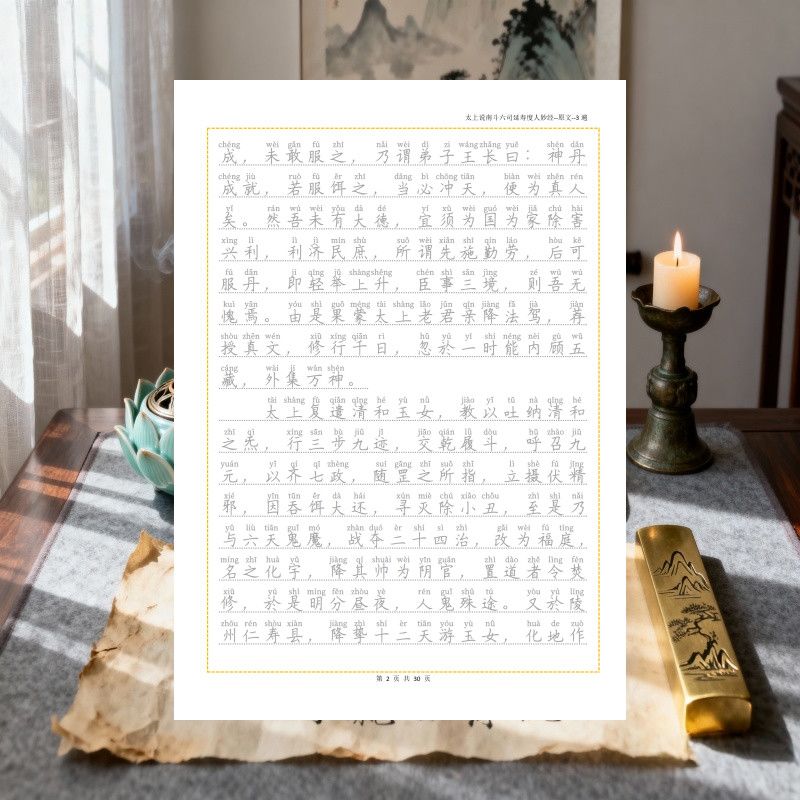 太上说南斗六司延寿度人妙经--原文--3 遍
chéng wèi gǎn fú zhī nǎi wèi dì zi wáng zhǎng yuē shén dān
成，未敢服之，乃谓弟子王长曰：神丹
chéng jiù ruò fú ěr zhī dāng bì chōng tiān biàn wèi zhēn rén
成就，若服饵之，当必冲天，便为真人
yǐ rán wú wèi yǒu dà dé yí xū wèi guó wèi jiā chú hài
矣。然吾未有大德，宜须为国为家除害
xìng lì lì jì mín shù suǒ wèi xiān shī qín láo hòu kě
兴利，利济民庶，所谓先施勤劳，后可
fú dān jí qīng jǔ shàng shēng chén shì sān jìng zé wú wú
服丹，即轻举上升，臣事三境，则吾无
kuì yān yóu shì guǒ méng tài shàng lǎo jūn qīn jiàng fǎ jià jiàn
愧焉。由是果蒙太上老君亲降法驾，荐
shòu zhēn wén xiū xíng qiān rì hū yú yī shí néng nèi gù wǔ
授真文，修行千日，忽於一时能内顾五
cáng wài jí wàn shén
藏，外集万神。
tài shàng fù qiǎn qīng hé yù nǚ jiào yǐ tǔ nà qīng hé
太上复遣清和玉女，教以吐纳清和
zhī qì xíng sān bù jiǔ jì jiāo qián lǚ dòu hū zhào jiǔ
之炁，行三步九迹，交乾履斗，呼召九
yuán yǐ qí qī zhèng suí gāng zhī suǒ zhǐ lì shè fú jīng
元，以齐七政，随罡之所指，立摄伏精
xié yīn tūn ěr dà hái xún miè chú xiǎo chǒu zhì shì nǎi
邪，因吞饵大还，寻灭除小丑，至是乃
yǔ liù tiān guǐ mó zhàn duó èr shí sì zhì gǎi wéi fú tíng
与六天鬼魔，战夺二十四治，改为福庭，
míng zhī huà yǔ jiàng qí shuài wèi yīn guān zhì dào zhě lìng fén
名之化宇，降其帅为阴官，置道者令焚
xiū yú shì míng fēn zhòu yè rén guǐ shū tú yòu yú líng
修，於是明分昼夜，人鬼殊途。又於陵
zhōu rén shòu xiàn jiàng zhì shí èr tiān yóu yù nǚ huà de zuò
州仁寿县，降摯十二天游玉女，化地作
第 2 页 共 30 页